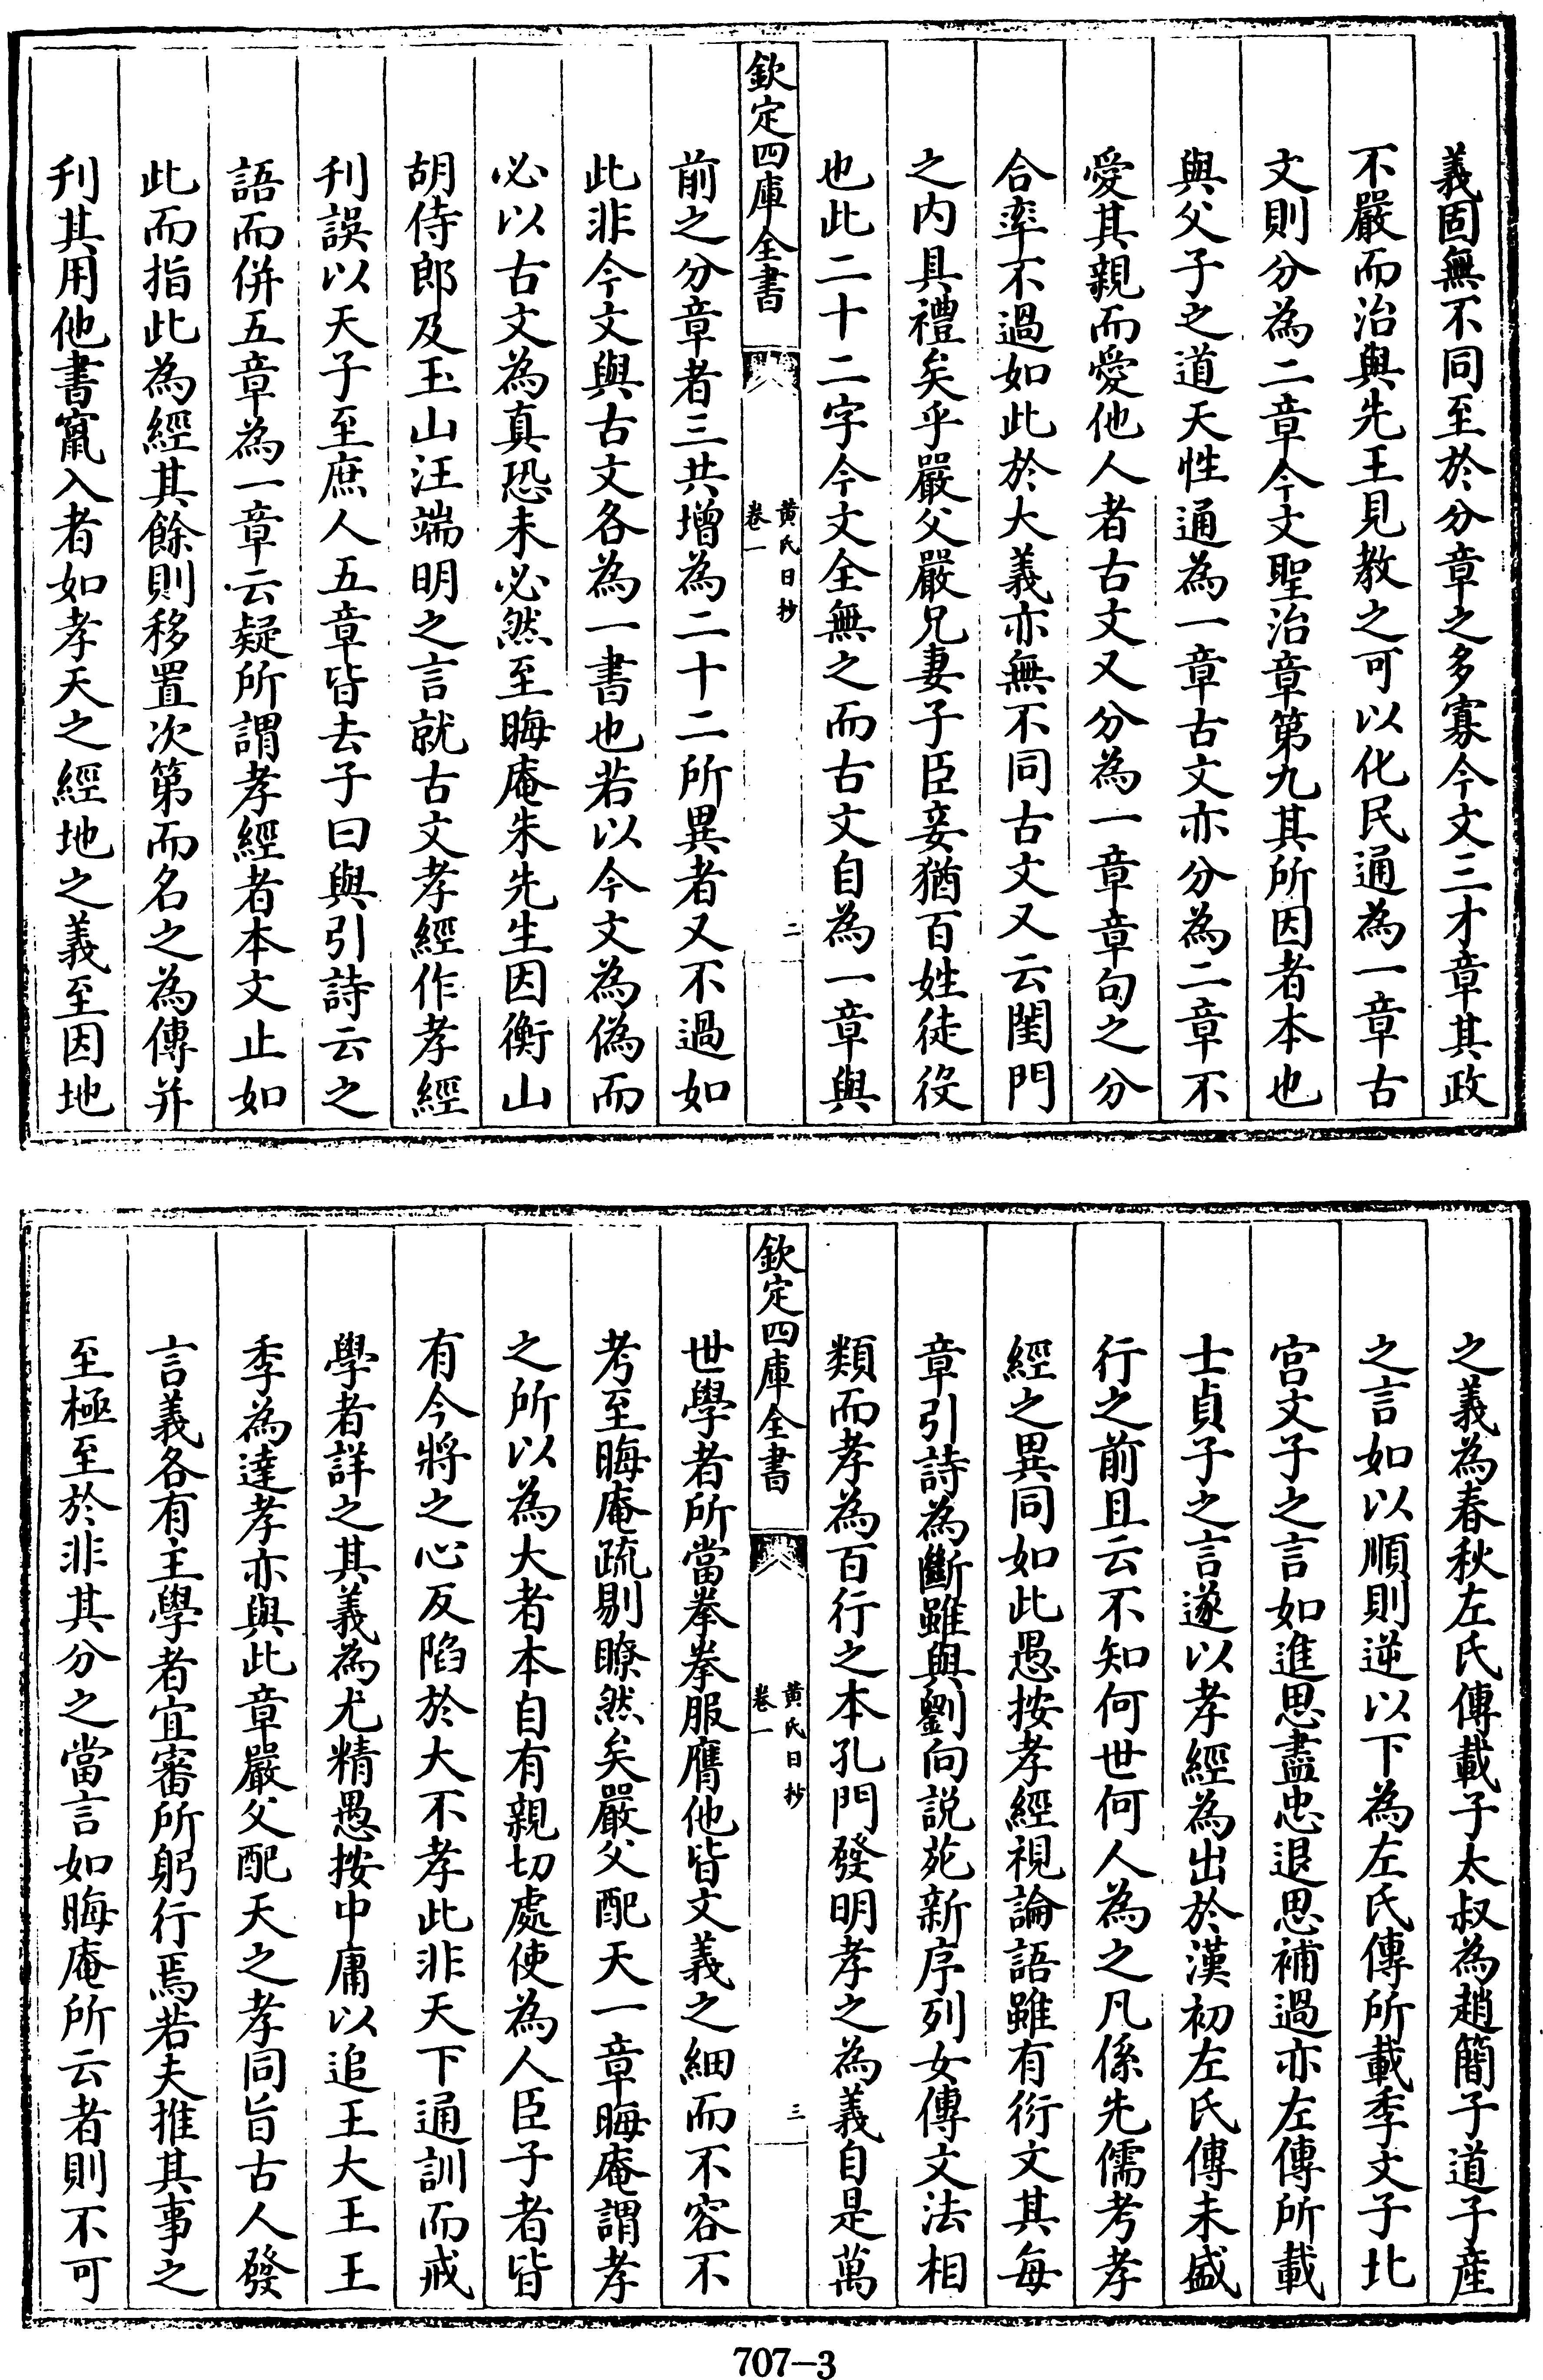 義固無不同至於分章之多寡今文三才章其政
不嚴而治與先王見教之可以化民通為一章古
文則分為二章今文聖治章第九其所因者本也
與父子之道天性通為一章古文亦分為二章不
愛其親而愛他人者古文又分為一章章句之分
合率不過如此於大義亦無不同古文又云閨門
之内具禮矣乎嚴父嚴兄妻子臣妾猶百姓徒役
也此二十二字今文全無之而古文自為一章與
欽定四庫全書
黄氏日抄
卷一
二
前之分章者三共增為二十二所異者又不過如
此非今文與古文各為一書也若以今文為偽而
必以古文為真恐未必然至晦庵朱先生因衡山
胡侍郎及玉山汪端明之言就古文孝經作孝經
刊誤以天子至庶人五章皆去子曰與引詩云之
語而併五章為一章云疑所謂孝經者本文止如
此而指此為經其餘則移置次第而名之為傳并
刊其用他書竄入者如孝天之經地之義至因地
之義為春秋左氏傳載子太叔為趙簡子道子産
之言如以順則逆以下為左氏傳所載季文子北
宫文子之言如進思盡忠退思補過亦左傳所載
士貞子之言遂以孝經為出於漢初左氏傳未盛
行之前且云不知何世何人為之凡係先儒考孝
經之異同如此愚按孝經視論語雖有衍文其每
章引詩為斷雖與劉向説苑新序列女傳文法相
類而孝為百行之本孔門發明孝之為義自是萬
欽定四庫全書
黄氏日抄
卷一
三
世學者所當拳拳服膺他皆文義之細而不容不
考至晦庵疏剔瞭然矣嚴父配天一章晦庵謂孝
之所以為大者本自有親切處使為人臣子者皆
有今將之心反陷於大不孝此非天下通訓而戒
學者詳之其義為尤精愚按中庸以追王大王王
季為達孝亦與此章嚴父配天之孝同旨古人發
言義各有主學者宜審所躬行焉若夫推其事之
至極至於非其分之當言如晦庵所云者則不可
707-3